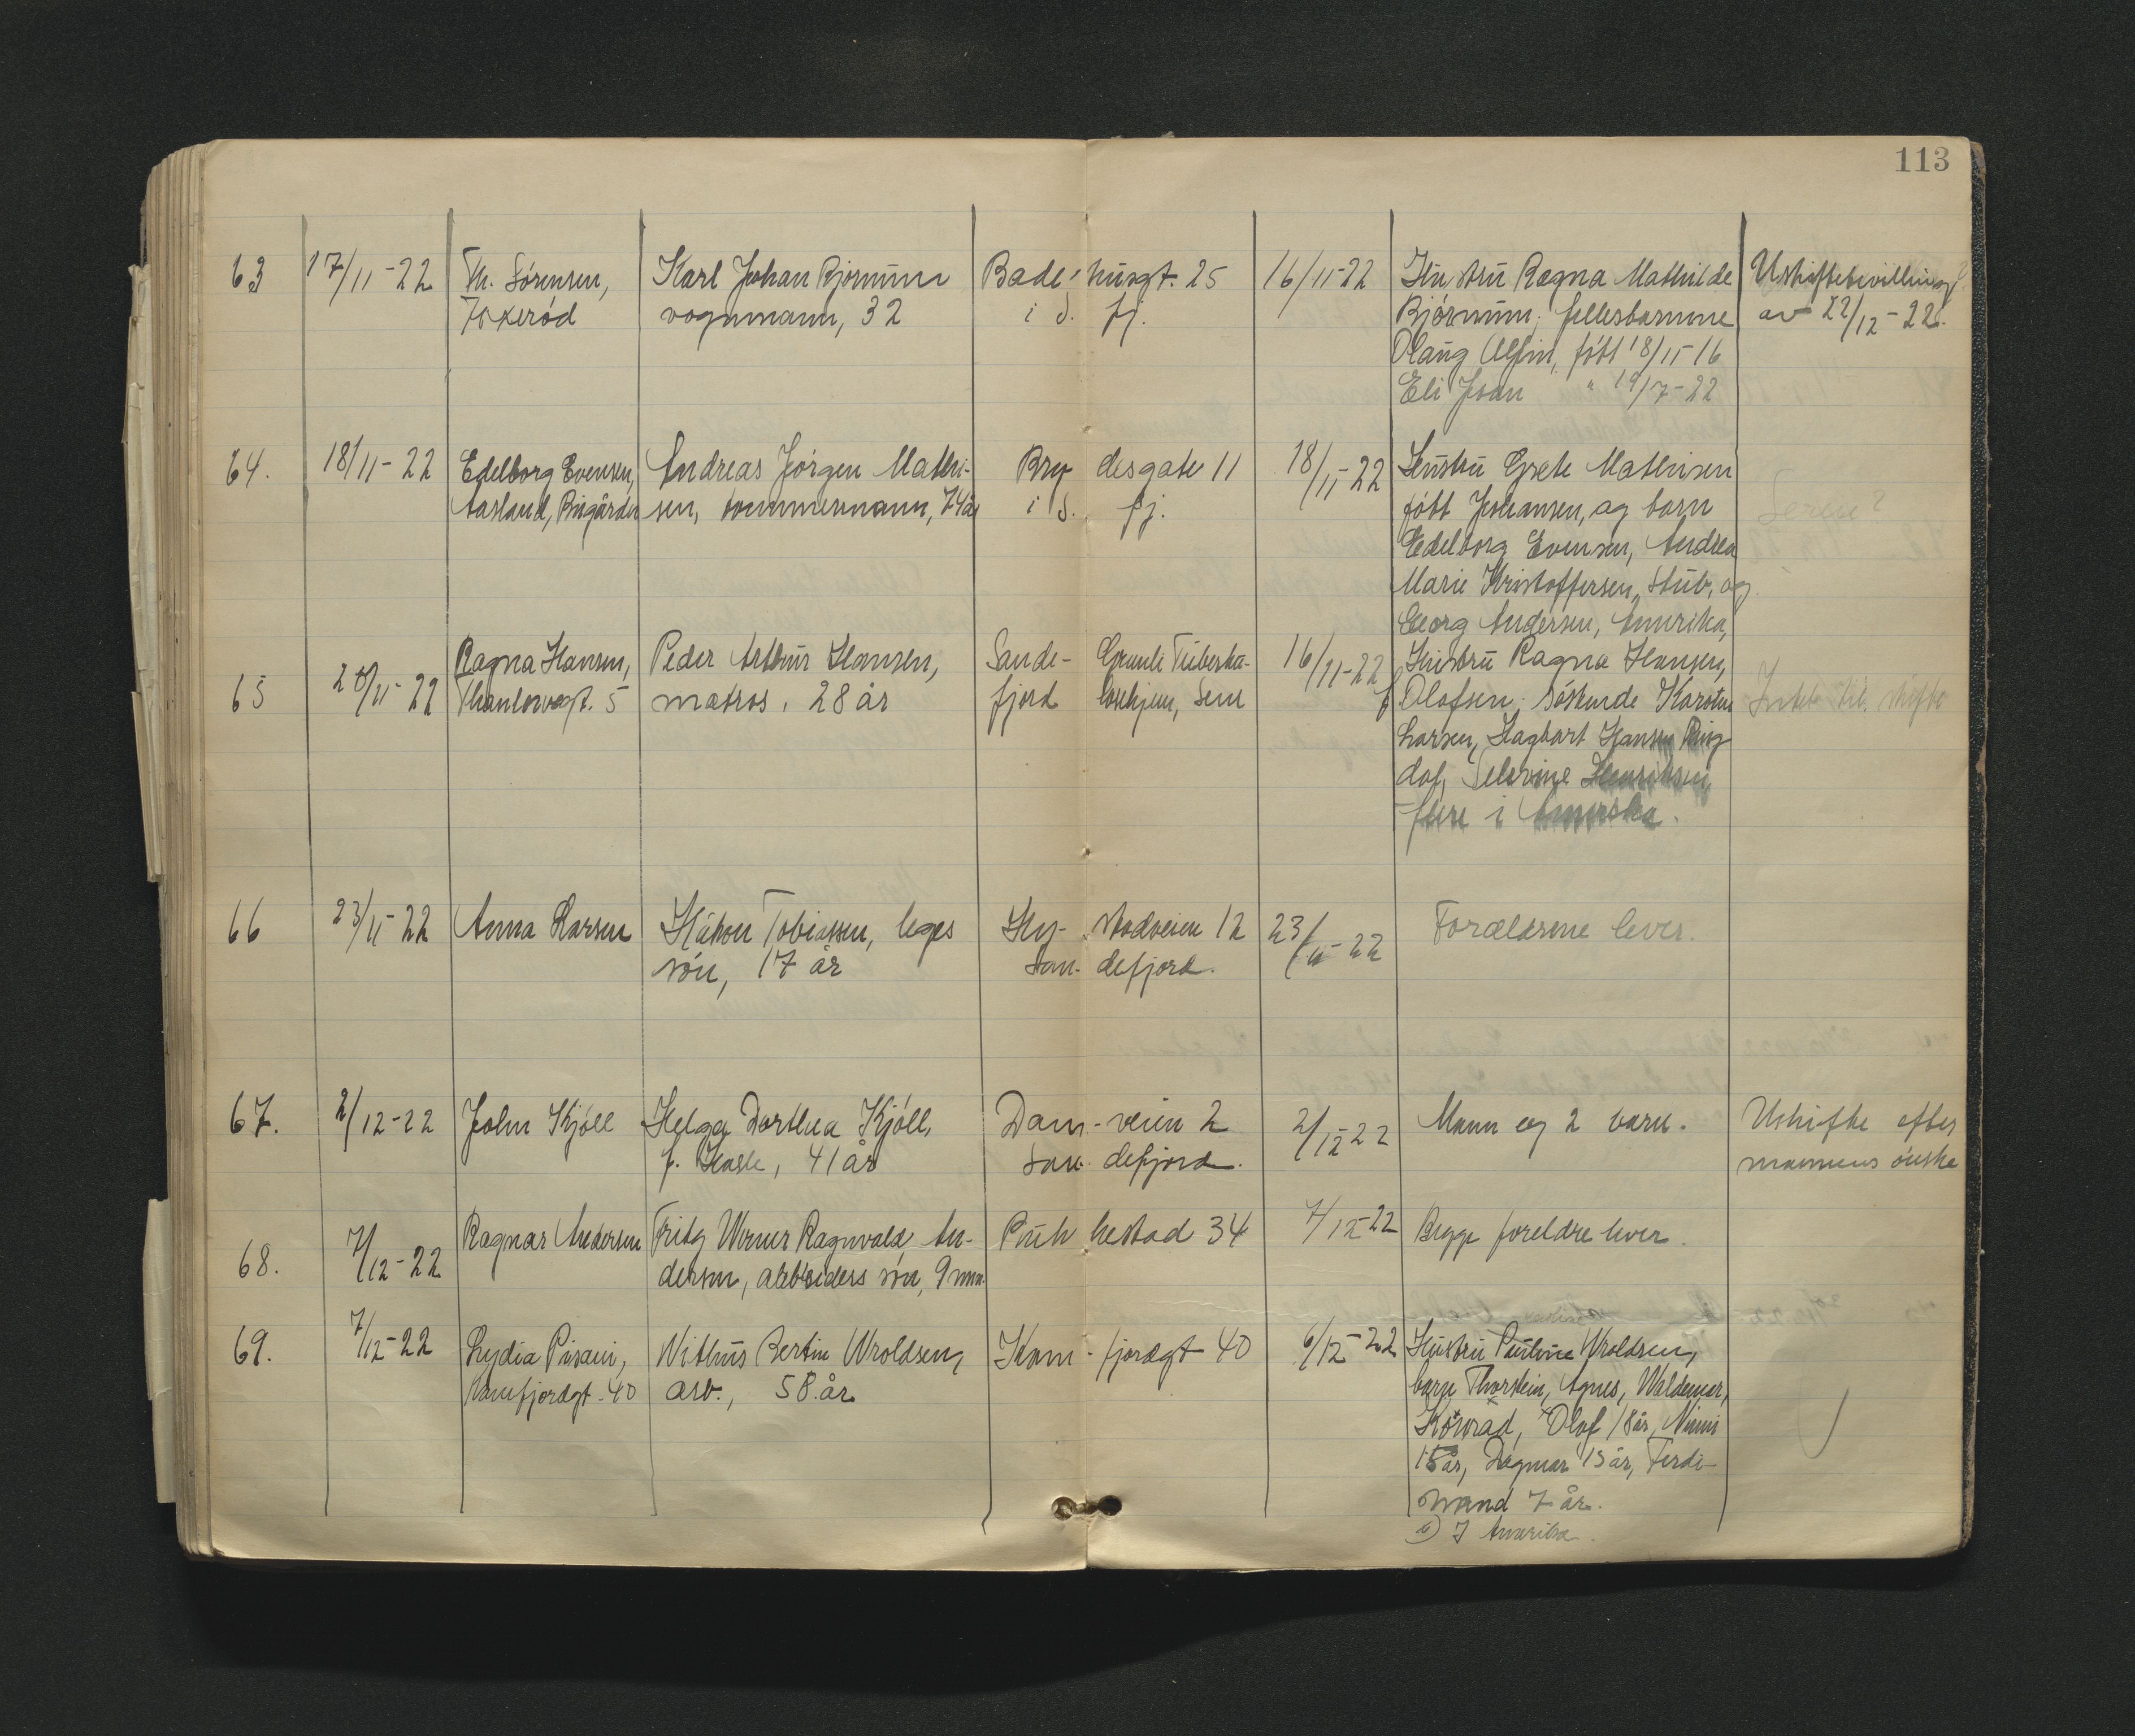 113
63 17/11-22 Th. Sørensen, Karl Johan Bjørnum Badehusgt. 25 16/11-22 Hustru Ragna Mathilde Uskiftebevilling
Fokserød vognmann, 32 i S. fj. Bjørnum; fellesbarnene av 22/12-22.
Olaug Alfin, født 18/11-16
Eli Joan " 19/7-22
64. 18/11-22 Edelborg Evensen, Andreas Jørgen Mathi- Brydesgate 11 18/11-22 Hustru Grete Mathisen
Aasland, sen, tømmermann, 74 år i S. fj. født Johansen, og barn
Edelborg Evensen, Andrea
Marie Kristoffersen, Stub, og
Georg Andersen, Amerika,
65 20/11-22 Ragna Hansen, Peder Arthur Hansen, Sande- Granli Tuberku- 16/11-22 Hustru Ragna Hansen,
Thaulowsgt. 5 matros, 28 år fjord losehjem, Sem f. Olafsen; søskende Karsten Intet til skifte
Larsen, Hagbart Hansen Ring
dal, Severine Henriksen,
flere i Amerika.
66 23/11-22 Anna Larsen Håkon Tobiassen, leges Hystadveien 12 23/11-22 Forældrene lever.
søn, 17 år Sandefjord.
67. 2/12-22 John Kjøll Helga Dorthea Kjøll, Dam-veien 2 2/12-22 Mann og 2 barn. Uskifte efter
f. Hasle, 41 år Sandefjord. mannens ønske
68. 7/12-22 Ragnar Andersen Fritz Werner Ragnvald An- Peukestad 34 7/12-22 Begge foreldre lever.
dersen, arbeiders søn, 9 mnd.
69. 7/12-22 Lydia Pisani, Nithus Bertin Wroldsen, Kamfjordgt 40 6/12-22 Hustru Pauline Wroldsen,
Kamfjordgt. 40 arb., 58 år barn Thorstein, Agnes, Waldemar,
Konrad, Olaf 18 år, Mimi
15 år, Dagmar 13 år, Ferdi-
nand 7 år.
x) I Amerika.